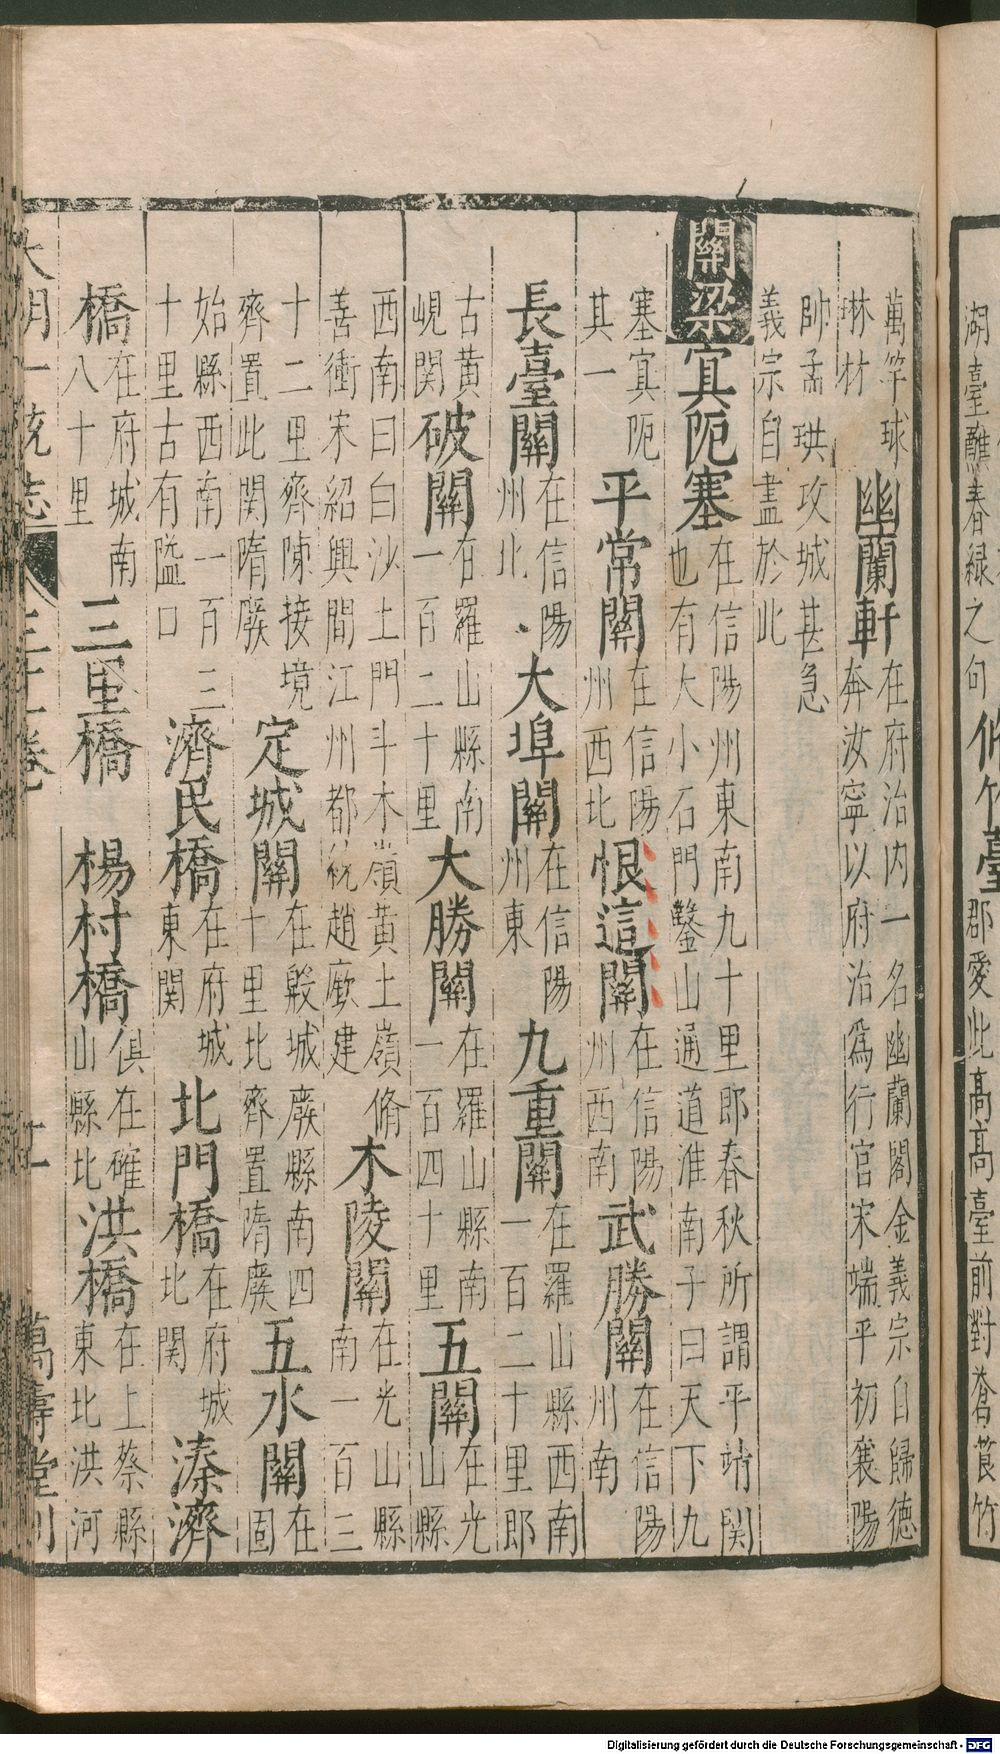 湖臺醮春緑之句 脩竹臺 郡愛此髙髙臺前對蒼筤竹
萬竿球
琳材
幽蘭軒
在府治内一名幽蘭閣金義宗自歸德
奔汝寧以府治爲行宫宋端平初襄陽
帥孟珙攻城甚急
義宗自盡於此
關梁
冥阨塞
在信陽州東南九十里郎春秋所謂平靖関
也有大小石門鑿山通道淮南子曰天下九
塞冥阨
其一
平常關
在信陽
州西北
恨這關
在信陽
州西南
武勝關
在信陽
州南
長臺關
在信陽
州北
大埠關
在信陽
州東
九重關
在羅山縣西南
一百二十里郎
古黄
峴関
破關
在羅山縣南
一百二十里
大勝關
在羅山縣南
一百四十里
五關
在光
山縣
西南曰白沙土門斗木嶺黄土嶺脩
善衝宋紹興間江州都統趙㢘建
木陵關
在光山縣
南一百三
十二里齊陳接境
齊置此関隋廢
定城關
在殷城廢縣南四
十里北齊置隋廢
五水關
在
固
始縣西南一百三
十里古有隘口
濟民橋
在府城
東関
北門橋
在府城
北関
溱濟
橋
在府城南
八十里
三里橋
楊村橋
俱在確
山縣北
洪橋
在上蔡縣
東北洪河
大明一統志 三十一卷 十一 萬壽堂刊
Digitalisierung gefördert durch die Deutsche Forschungsgemeinschaft - DFG